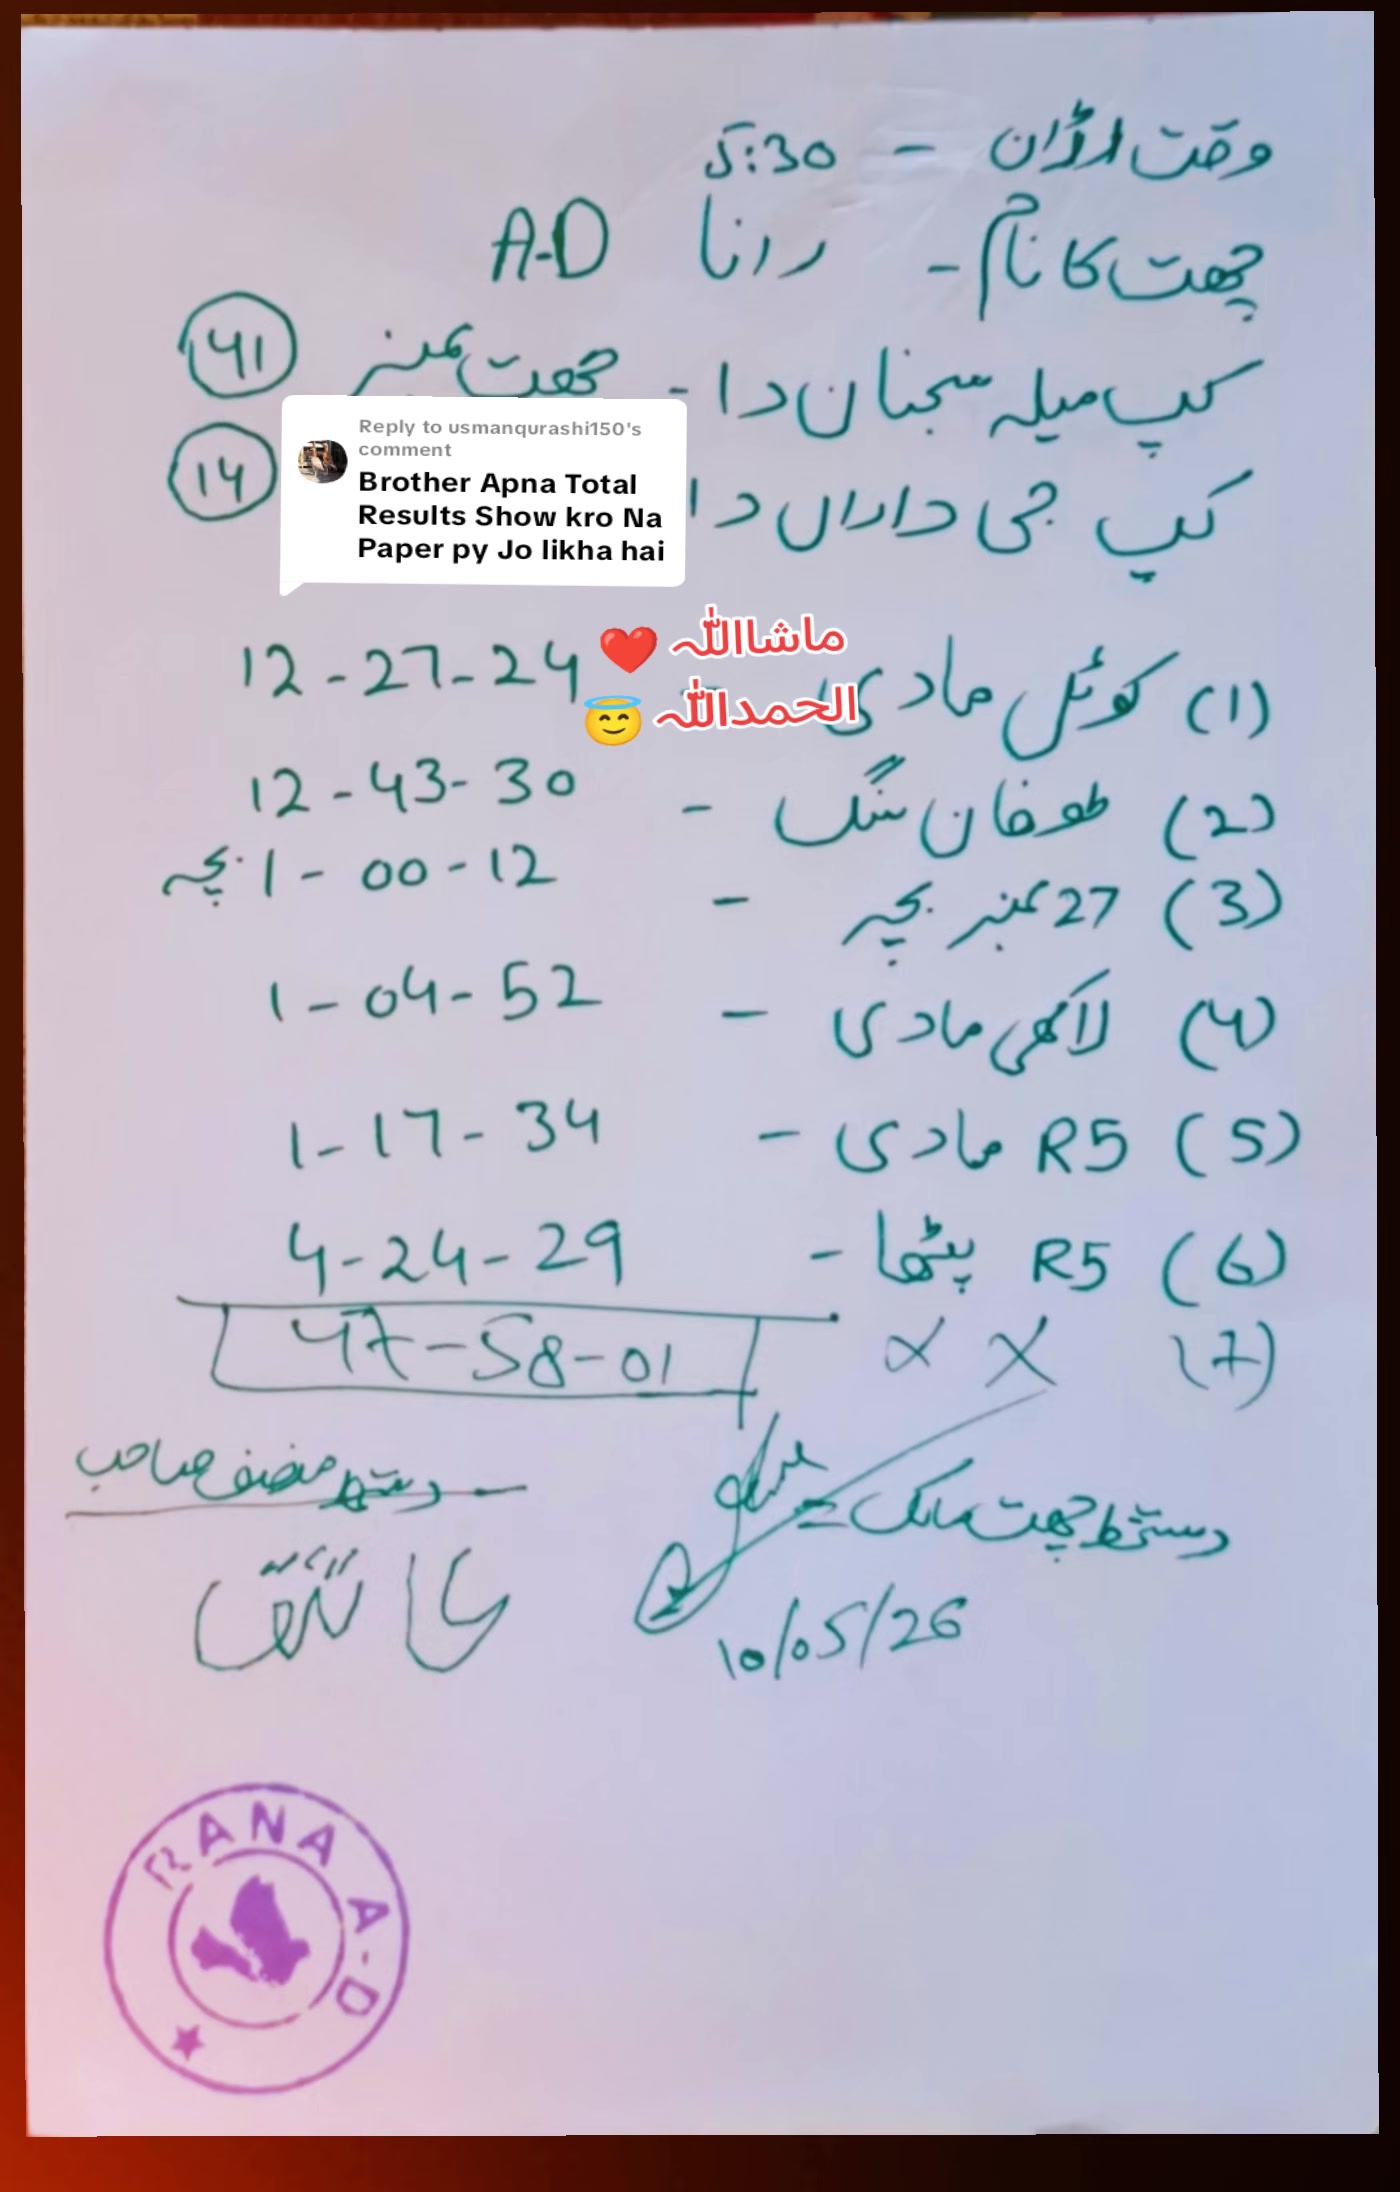 وقت اڑان - 5:30
چھت کا نام - رانا A-D
کپ میلہ سجنان دا - چھت نمبر 41
کپ جی داراں دا 14
Reply to usmanqurashi150's
comment
Brother Apna Total
Results Show kro Na
Paper py Jo likha hai
ماشااللہ ❤️
الحمداللہ 😇
(1) کوئل مادی - 12-27-24
(2) طوفان سنگ - 12-43-30
(3) 27 نمبر بچہ - 1-00-12 بچہ
(4) لاکھی مادی - 1-04-52
(5) R5 مادی - 1-17-34
(6) R5 پٹھا - 4-24-29
(7) X X 47-58-01
دستخط چھت مالک =
دستخط منصف صاحب
10/05/26
RANA A-D